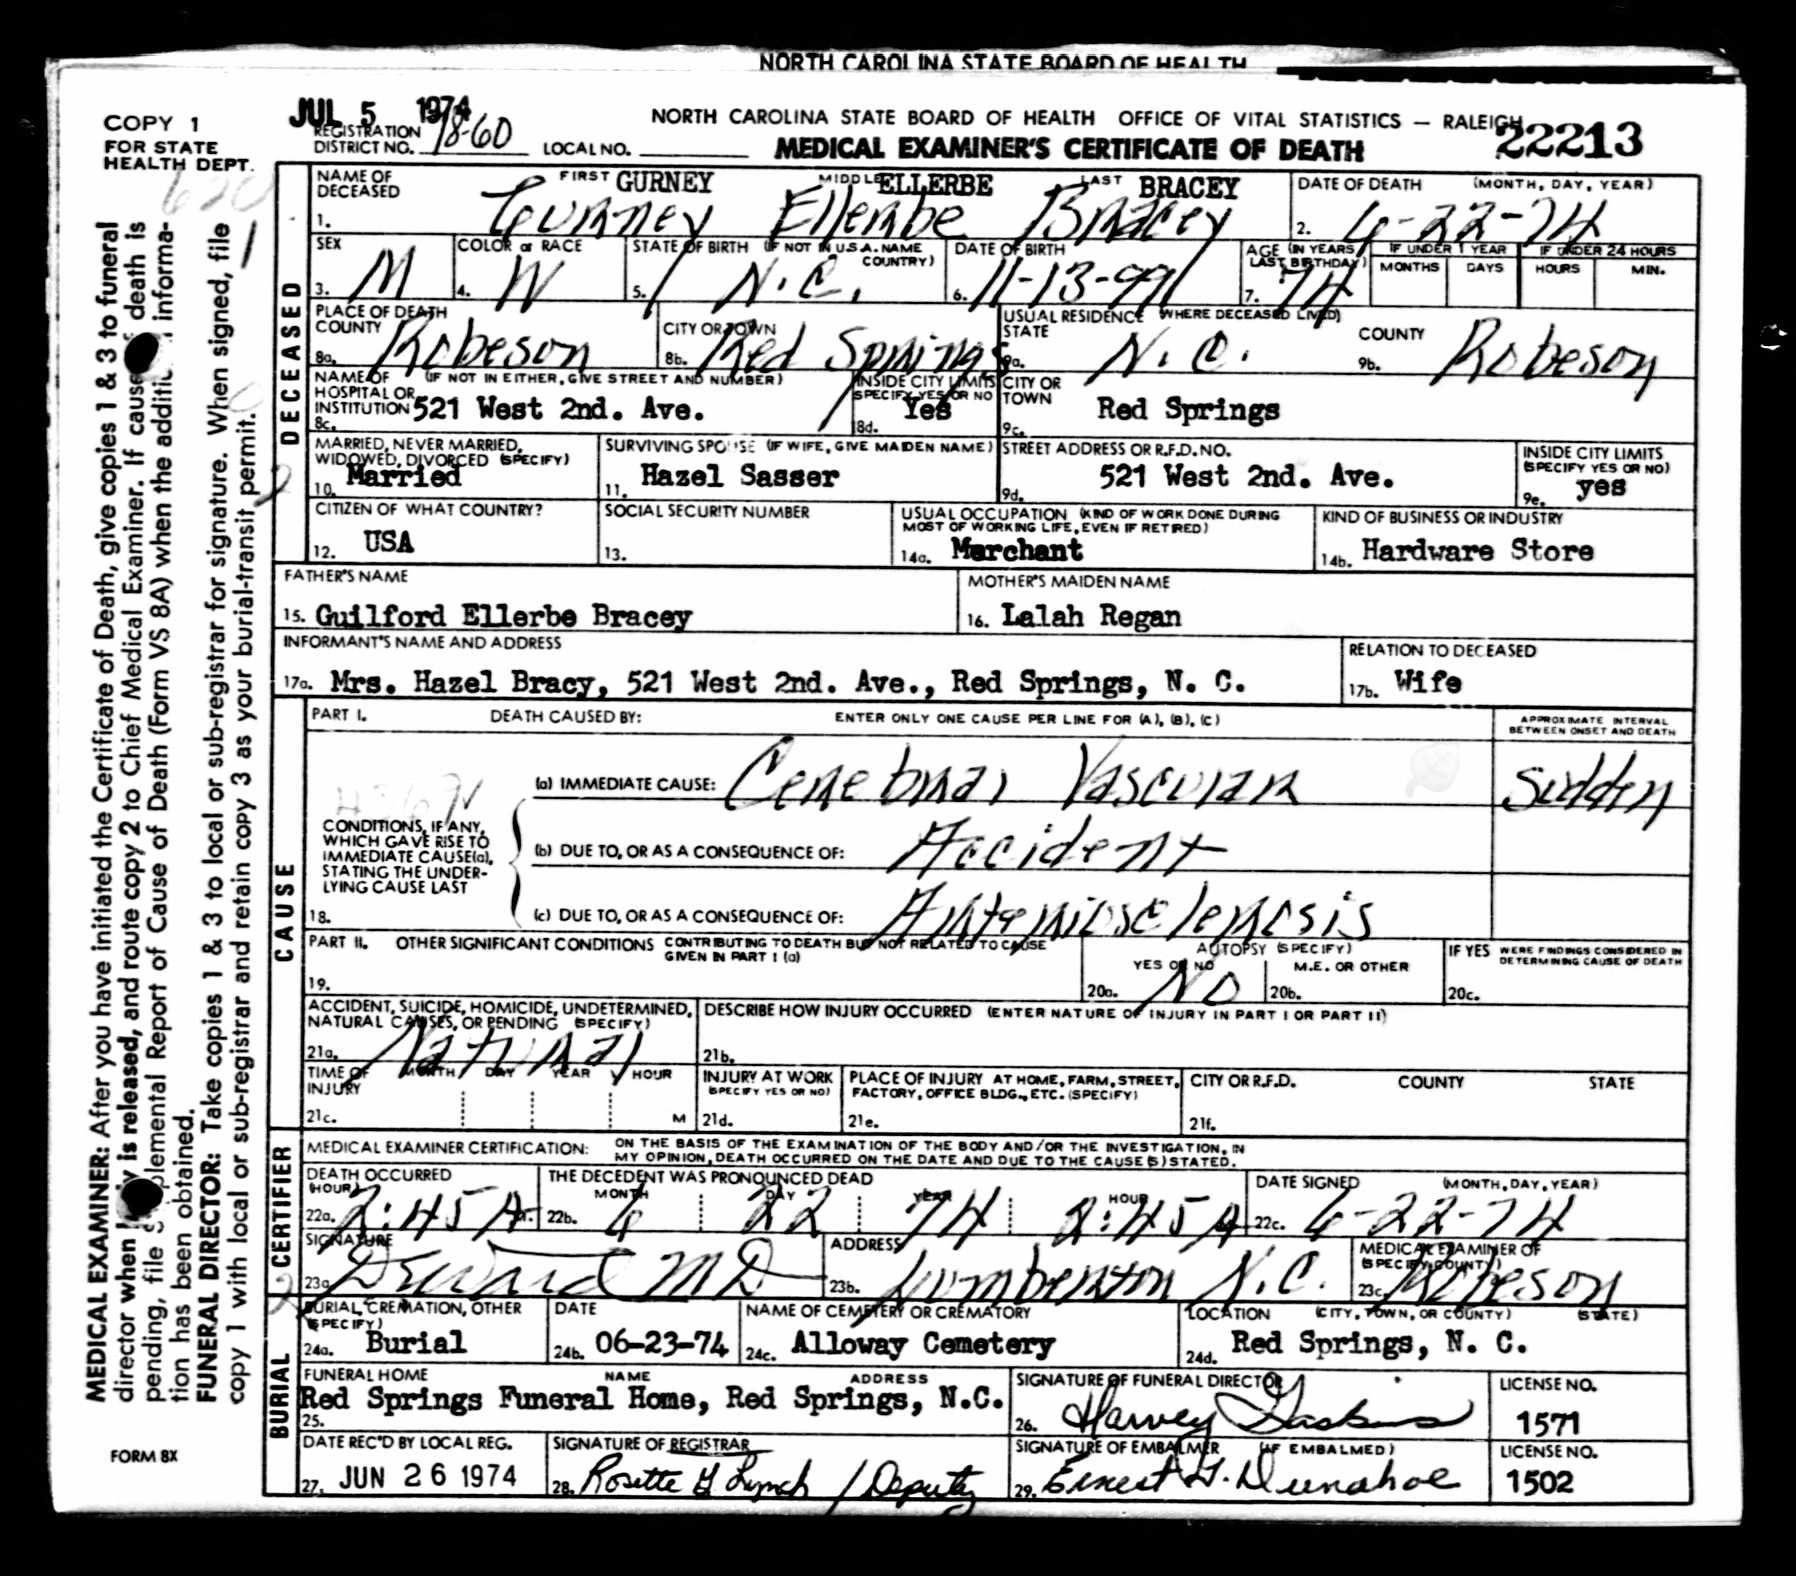 NORTH CAROLINA STATE BOARD OF HEALTH
COPY 1
FOR STATE
HEALTH DEPT.
JUL 5 1974
REGISTRATION
DISTRICT NO. 78-60 LOCAL NO.
NORTH CAROLINA STATE BOARD OF HEALTH OFFICE OF VITAL STATISTICS — RALEIGH
MEDICAL EXAMINER'S CERTIFICATE OF DEATH
22213
620
1
MEDICAL EXAMINER: After you have initiated the Certificate of Death, give copies 1 & 3 to funeral
director when is released, and route copy 2 to Chief Medical Examiner. If cause death is
pending, file Report of Cause of Death (Form VS 8A) when the informa-
tion has been obtained.
FUNERAL DIRECTOR: Take copies 1 & 3 to local or sub-registrar for signature. When signed, file
copy 1 with local or sub-registrar and retain copy 3 as your burial-transit permit.
FORM 8X
DECEASED
NAME OF DECEASED
FIRST GURNEY MIDDLE ELLERBE LAST BRACEY
1. Gurney Ellerbe Bracey
DATE OF DEATH (MONTH, DAY, YEAR)
2. 6-22-74
SEX
3. M
COLOR or RACE
4. W
STATE OF BIRTH (IF NOT IN U.S.A. NAME COUNTRY)
5. N.C.
DATE OF BIRTH
6. 11-13-99
AGE (IN YEARS LAST BIRTHDAY)
7. 74
IF UNDER 1 YEAR
MONTHS DAYS
IF UNDER 24 HOURS
HOURS MIN.
PLACE OF DEATH
COUNTY
8a. Robeson
CITY OR TOWN
8b. Red Springs
USUAL RESIDENCE (WHERE DECEASED LIVED)
STATE
9a. N.C.
COUNTY
9b. Robeson
NAME OF HOSPITAL OR INSTITUTION (IF NOT IN EITHER, GIVE STREET AND NUMBER)
8c. 521 West 2nd. Ave.
INSIDE CITY LIMITS
SPECIFY YES OR NO
8d. Yes
CITY OR TOWN
9c. Red Springs
MARRIED, NEVER MARRIED,
WIDOWED, DIVORCED (SPECIFY)
10. Married
SURVIVING SPOUSE (IF WIFE, GIVE MAIDEN NAME)
11. Hazel Sasser
STREET ADDRESS OR R.F.D. NO.
9d. 521 West 2nd. Ave.
INSIDE CITY LIMITS
(SPECIFY YES OR NO)
9e. yes
CITIZEN OF WHAT COUNTRY?
12. USA
SOCIAL SECURITY NUMBER
13.
USUAL OCCUPATION (KIND OF WORK DONE DURING
MOST OF WORKING LIFE, EVEN IF RETIRED)
14a. Merchant
KIND OF BUSINESS OR INDUSTRY
14b. Hardware Store
FATHER'S NAME
15. Guilford Ellerbe Bracey
MOTHER'S MAIDEN NAME
16. Lalah Regan
INFORMANT'S NAME AND ADDRESS
17a. Mrs. Hazel Bracy, 521 West 2nd. Ave., Red Springs, N. C.
RELATION TO DECEASED
17b. Wife
CAUSE
PART I. DEATH CAUSED BY: ENTER ONLY ONE CAUSE PER LINE FOR (A), (B), (C)
APPROXIMATE INTERVAL
BETWEEN ONSET AND DEATH
(a) IMMEDIATE CAUSE: Cerebral Vascular
Sudden
CONDITIONS, IF ANY,
WHICH GAVE RISE TO
IMMEDIATE CAUSE(a),
STATING THE UNDER-
LYING CAUSE LAST
(b) DUE TO, OR AS A CONSEQUENCE OF: Accident
18.
(c) DUE TO, OR AS A CONSEQUENCE OF: Arteriosclerosis
PART II. OTHER SIGNIFICANT CONDITIONS CONTRIBUTING TO DEATH BUT NOT RELATED TO CAUSE
GIVEN IN PART I (a)
19.
AUTOPSY (SPECIFY)
YES OR NO
20a. NO
M.E. OR OTHER
20b.
IF YES WERE FINDINGS CONSIDERED IN
DETERMINING CAUSE OF DEATH
20c.
ACCIDENT, SUICIDE, HOMICIDE, UNDETERMINED,
NATURAL CAUSES, OR PENDING (SPECIFY)
21a. Natural
DESCRIBE HOW INJURY OCCURRED (ENTER NATURE OF INJURY IN PART I OR PART II)
21b.
TIME OF INJURY
MONTH DAY YEAR HOUR
21c. M
INJURY AT WORK
(SPECIFY YES OR NO)
21d.
PLACE OF INJURY AT HOME, FARM, STREET,
FACTORY, OFFICE BLDG., ETC. (SPECIFY)
21e.
CITY OR R.F.D. COUNTY STATE
21f.
CERTIFIER
MEDICAL EXAMINER CERTIFICATION: ON THE BASIS OF THE EXAMINATION OF THE BODY AND/OR THE INVESTIGATION, IN
MY OPINION, DEATH OCCURRED ON THE DATE AND DUE TO THE CAUSE(S) STATED.
DEATH OCCURRED
(HOUR)
22a. 2:45 A M.
THE DECEDENT WAS PRONOUNCED DEAD
MONTH DAY YEAR HOUR
22b. 6 22 74 2:45 A
DATE SIGNED (MONTH, DAY, YEAR)
22c. 6-22-74
SIGNATURE
23a. MD
ADDRESS
23b. Lumberton N.C.
MEDICAL EXAMINER OF
(SPECIFY COUNTY)
23c. Robeson
BURIAL
BURIAL, CREMATION, OTHER
(SPECIFY)
24a. Burial
DATE
24b. 06-23-74
NAME OF CEMETERY OR CREMATORY
24c. Alloway Cemetery
LOCATION (CITY, TOWN, OR COUNTY) (STATE)
24d. Red Springs, N. C.
FUNERAL HOME NAME ADDRESS
Red Springs Funeral Home, Red Springs, N.C.
25.
SIGNATURE OF FUNERAL DIRECTOR
26. Harvey Gaskins
LICENSE NO.
1571
DATE REC'D BY LOCAL REG.
27. JUN 26 1974
SIGNATURE OF REGISTRAR
28. Rosette G Lynch / Deputy
SIGNATURE OF EMBALMER (IF EMBALMED)
29. Ernest G. Dunahoe
LICENSE NO.
1502